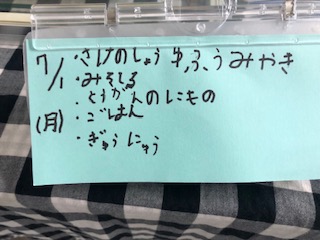 7/1 ・さけのしょうゆ、ふうみやき
・みそしる
・とうがんのにもの
(月) ・ごはん
・ぎゅうにゅう